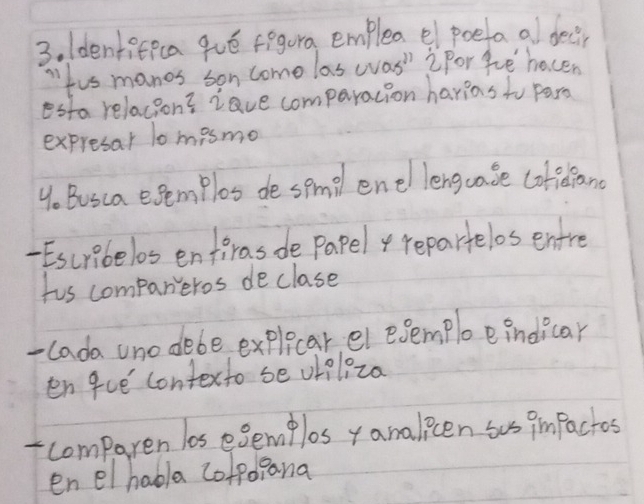 3. Identifica qué figura emplea el poeta al decir
"tus manos son como las uvas" ¿Por qué hacen
esta relacion? ¿Que comparacion harias tu para
expresar lo mismo
4. Busca ejemplos de simil en el lenguaje cotidiano
- Escribelos en tiras de papel y repartelos entre
tus compañeros de clase
- Cada uno debe explicar el ejemplo e indicar
en qué contexto se utiliza
- comparen los ejemplos y analicen sus impactos
en el habla cotidiana